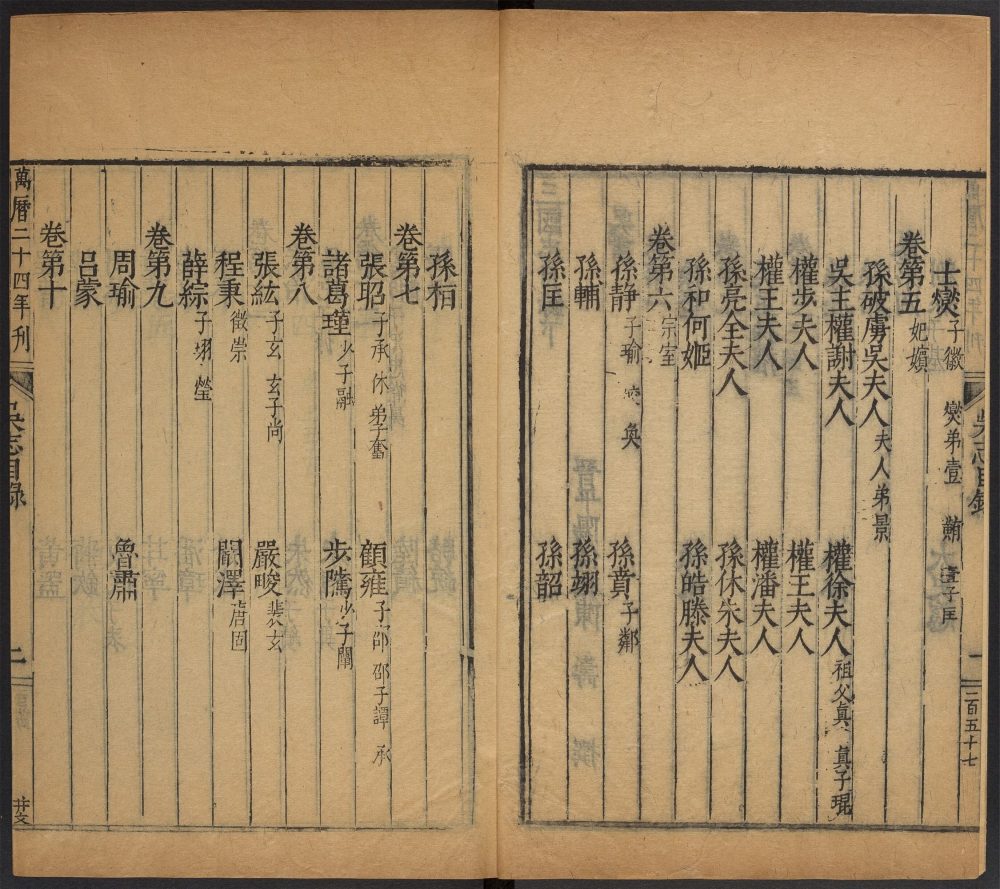 吳志目錄
一
二百五十七
士燮 子徽 燮弟壹 䵋 壹子匡
卷第五 妃嬪
孫破虜吳夫人 夫人弟景
吳王權謝夫人 權徐夫人 祖父真 真子琨
權步夫人 權王夫人
權王夫人 權潘夫人
孫亮全夫人 孫休朱夫人
孫和何姬 孫皓滕夫人
卷第六 宗室
孫靜 子瑜 奐 孫賁 子鄰
孫輔 孫翊
孫匡 孫韶
孫桓
卷第七
張昭 子承 休 弟子奮 顧雍 子邵 邵子譚 承
諸葛瑾 少子融 步騭 少子闡
卷第八
張紘 子玄 玄子尚 嚴畯 裴玄
程秉 徵崇 闞澤 唐固
薛綜 子珝 瑩
卷第九
周瑜 魯肅
呂蒙
卷第十
萬曆二十四年刊
吳志目錄
二